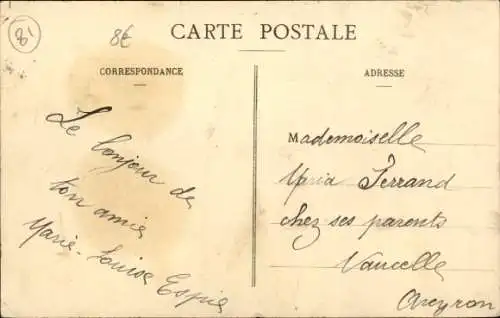 81
8€
CARTE POSTALE
CORRESPONDANCE
ADRESSE
Le bonjour de
ton amie
Marie-Louise Espie
Mademoiselle
Maria Ferrand
chez ses parents
Vaucelle
Aveyron